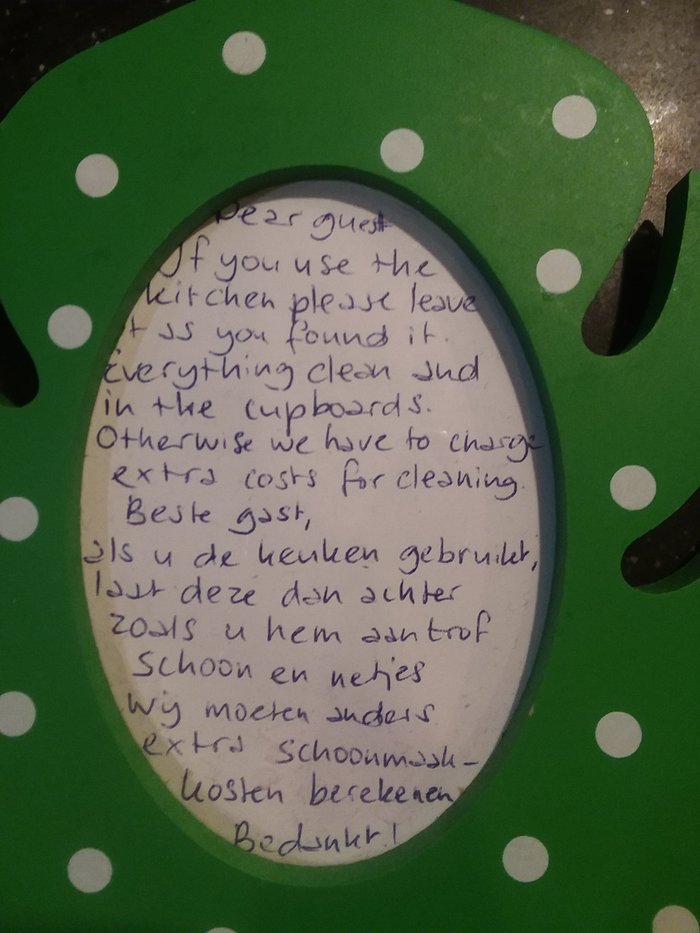 Dear guest
If you use the
kitchen please leave
it as you found it.
Everything clean and
in the cupboards.
Otherwise we have to charge
extra costs for cleaning.
Beste gast,
als u de keuken gebruikt,
laat deze dan achter
zoals u hem aantrof
schoon en netjes
Wij moeten anders
extra schoonmaak-
kosten berekenen
Bedankt!